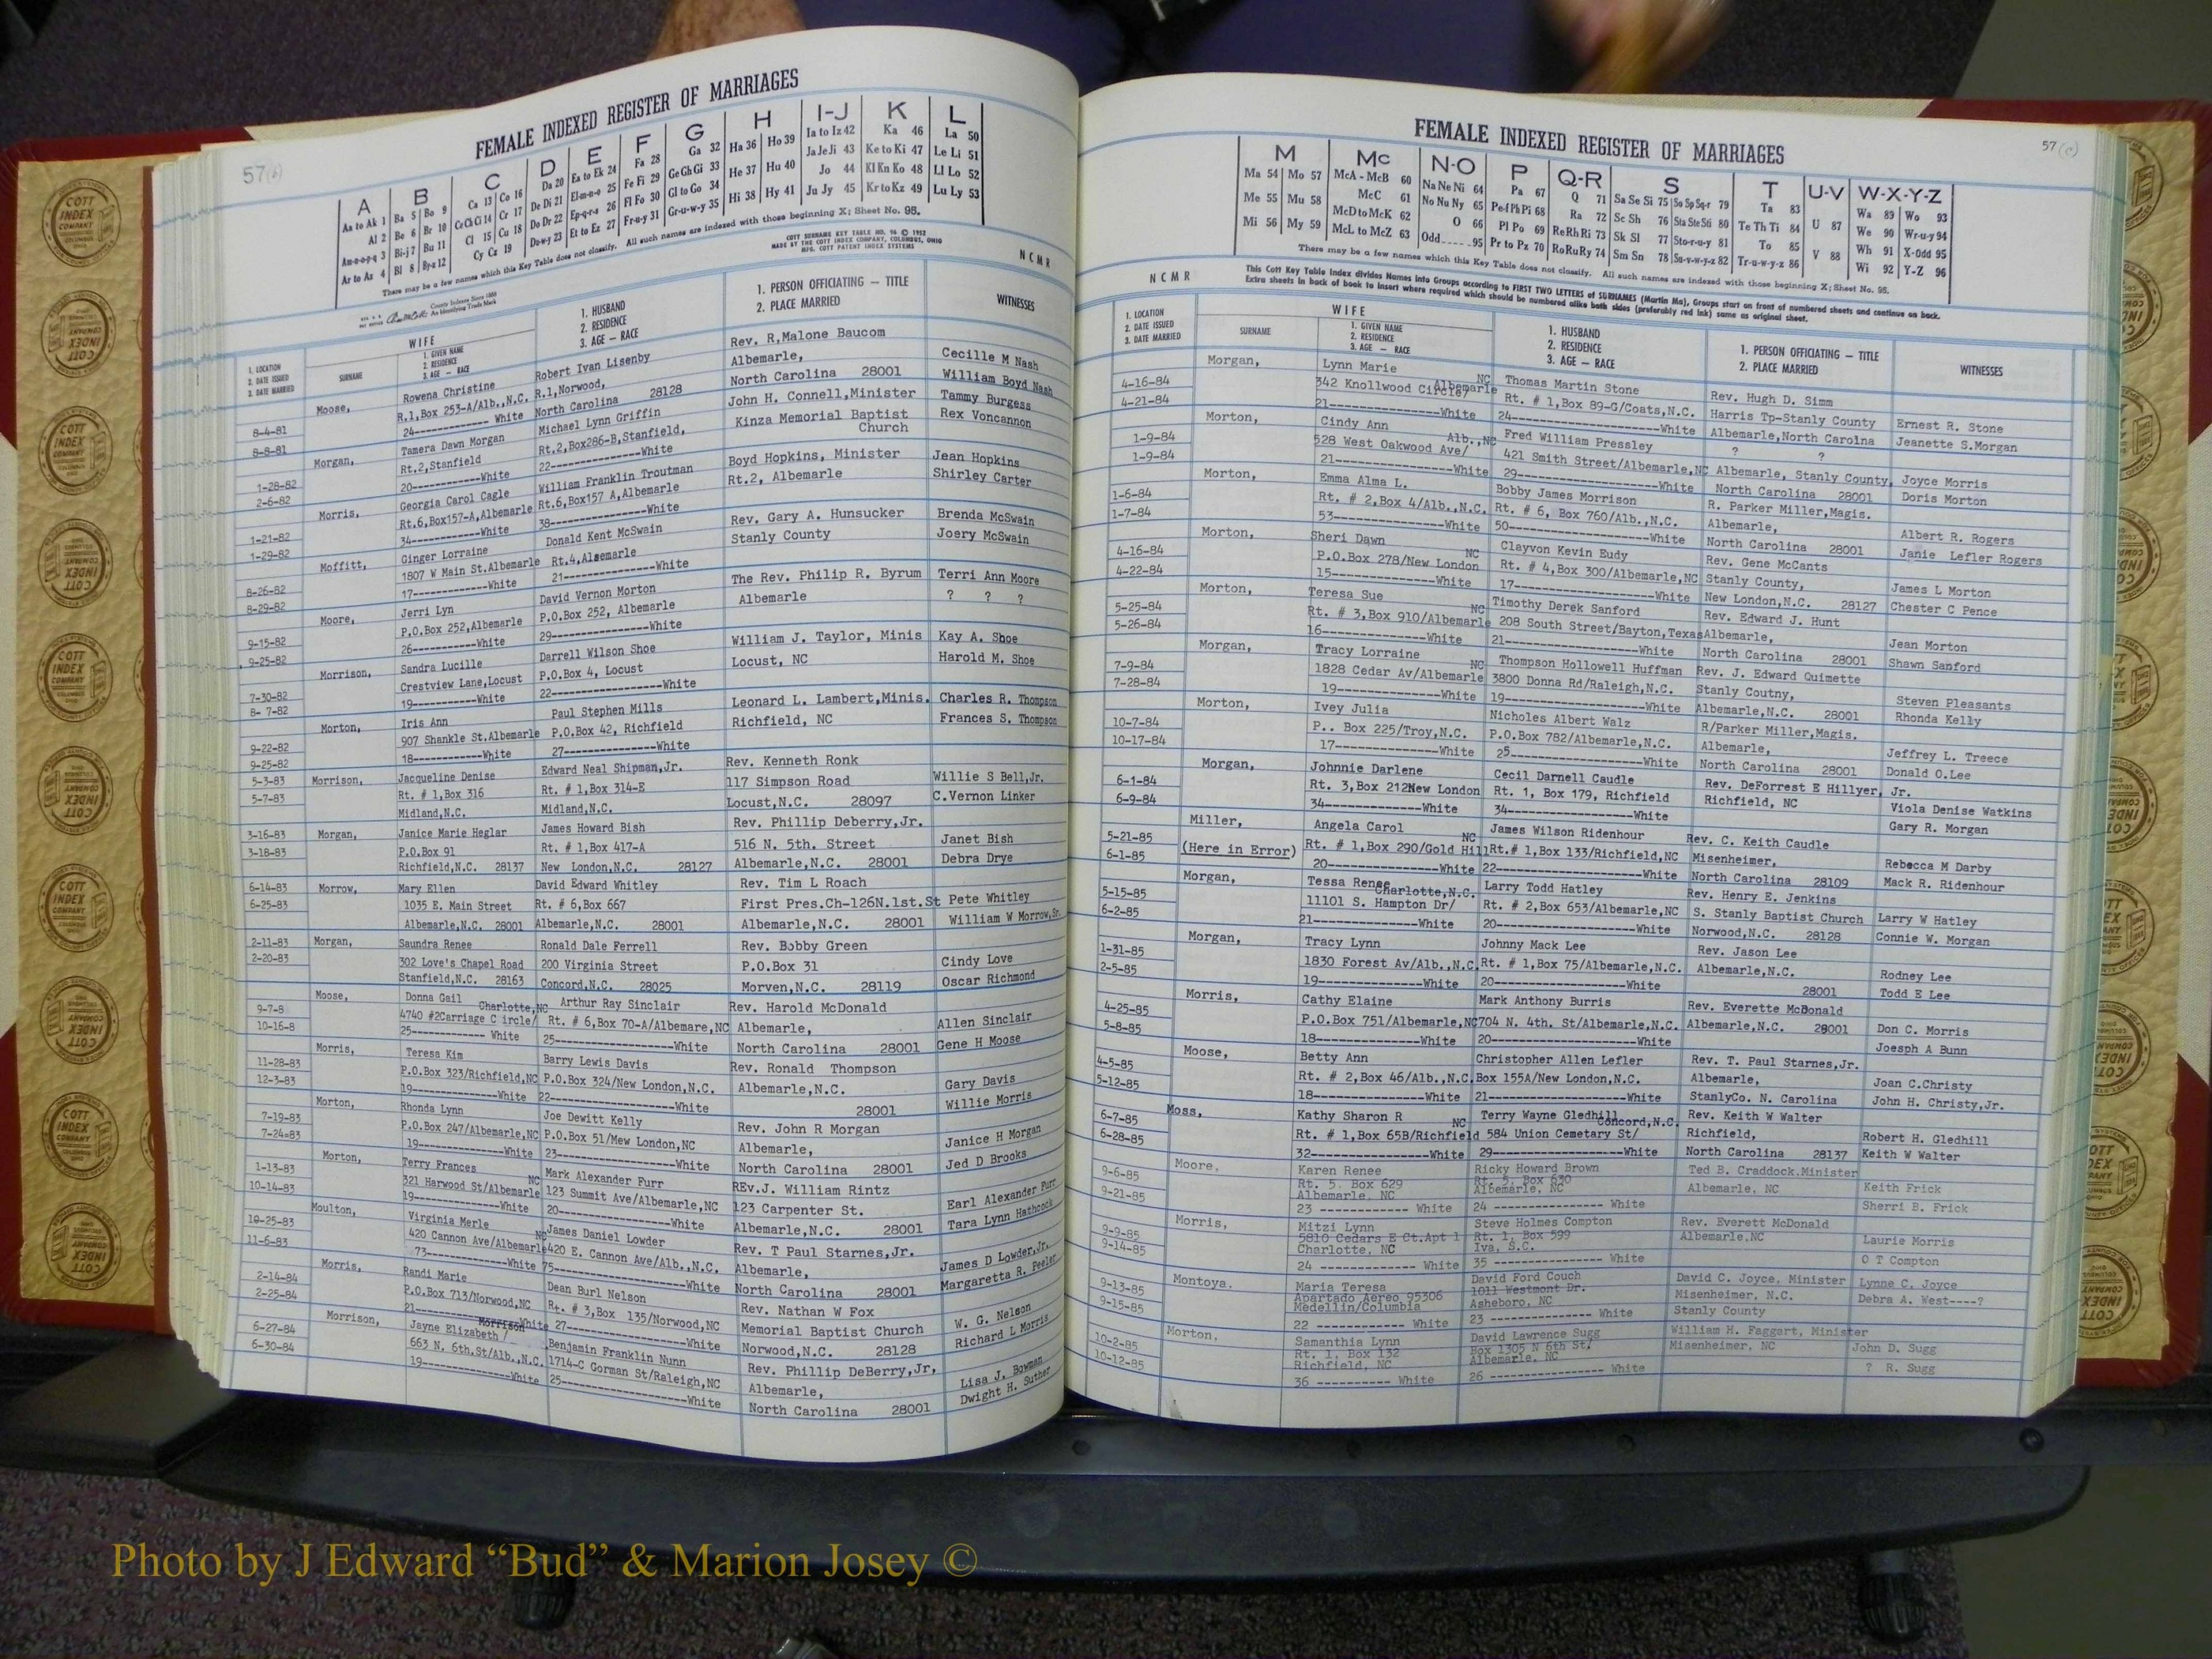 57(b)
FEMALE INDEXED REGISTER OF MARRIAGES
A B C D E F G H I-J K L
Aa to Ak 1 Ba 5 Bo 9 Ca 13 Co 16 Da 20 Ea to Ek 24 Fa 28 Ga 32 Ha 36 Ho 39 Ia to Iz 42 Ka 46 La 50
Al 2 Be 6 Br 10 Ce Ch Ci 14 Cr 17 De Di 21 El-m-n-o 25 Fe Fi 29 Ge Gh Gi 33 He 37 Hu 40 Ja Je Ji 43 Ke to Ki 47 Le Li 51
Am-n-o-p-q 3 Bi-j 7 Bu 11 Cl 15 Cu 18 Do Dr 22 Ep-q-r-s 26 Fl Fo 30 Gl to Go 34 Hi 38 Hy 41 Jo 44 Kl Kn Ko 48 Ll Lo 52
Ar to Az 4 Bl 8 By-z 12 Cy Cz 19 Dow-y 23 Et to Ez 27 Fr-u-y 31 Gr-u-w-y 35 Ju Jy 45 Kr to Kz 49 Lu Ly 53
There may be a few names which this Key Table does not classify. All such names are indexed with those beginning X; Sheet No. 95.
COTT SURNAME KEY TABLE NO. 96 © 1952
MADE BY THE COTT INDEX COMPANY, COLUMBUS, OHIO
MFG. COTT PATENT INDEX SYSTEMS
County Indexes Since 1888
An Identifying Trade Mark
N C M R
1. LOCATION
2. DATE ISSUED
3. DATE MARRIED
WIFE
SURNAME
1. GIVEN NAME
2. RESIDENCE
3. AGE — RACE
1. HUSBAND
2. RESIDENCE
3. AGE — RACE
1. PERSON OFFICIATING — TITLE
2. PLACE MARRIED
WITNESSES
Moose, Rowena Christine Robert Ivan Lisenby Rev. R,Malone Baucom Cecille M Nash
8-4-81 R.1,Box 253-A/Alb.,N.C. R.1,Norwood, Albemarle, William Boyd Nash
8-8-81 24------------ White North Carolina 28128 North Carolina 28001
Morgan, Tamera Dawn Morgan Michael Lynn Griffin John H. Connell,Minister Tammy Burgess
1-28-82 Rt.2,Stanfield Rt.2,Box286-B,Stanfield, Kinza Memorial Baptist Rex Voncannon
2-6-82 20-----------White 22-------------White Church
Morris, Georgia Carol Cagle William Franklin Troutman Boyd Hopkins, Minister Jean Hopkins
1-21-82 Rt.6,Box157-A,Albemarle Rt.6,Box157 A,Albemarle Rt.2, Albemarle Shirley Carter
1-29-82 34-----------White 38-------------White
Moffitt, Ginger Lorraine Donald Kent McSwain Rev. Gary A. Hunsucker Brenda McSwain
8-26-82 1807 W Main St.Albemarle Rt.4,Alsemarle Stanly County Joery McSwain
8-29-82 17-----------White 21-------------White
Moore, Jerri Lyn David Vernon Morton The Rev. Philip R. Byrum Terri Ann Moore
9-15-82 P.O.Box 252,Albemarle P.O.Box 252, Albemarle Albemarle ? ? ?
9-25-82 26-----------White 29---------------White
Morrison, Sandra Lucille Darrell Wilson Shoe William J. Taylor, Minis Kay A. Shoe
7-30-82 Crestview Lane,Locust P.O.Box 4, Locust Locust, NC Harold M. Shoe
8- 7-82 19-----------White 22------------------White
Morton, Iris Ann Paul Stephen Mills Leonard L. Lambert,Minis. Charles R. Thompson
9-22-82 907 Shankle St.Albemarle P.O.Box 42, Richfield Richfield, NC Frances S. Thompson
9-25-82 18-----------White 27---------------White
5-3-83 Morrison, Jacqueline Denise Edward Neal Shipman,Jr. Rev. Kenneth Ronk Willie S Bell,Jr.
5-7-83 Rt. # 1,Box 316 Rt. # 1,Box 314-E 117 Simpson Road C.Vernon Linker
Midland,N.C. Midland,N.C. Locust,N.C. 28097
3-16-83 Morgan, Janice Marie Heglar James Howard Bish Rev. Phillip Deberry,Jr. Janet Bish
3-18-83 P.O.Box 91 Rt. # 1,Box 417-A 516 N. 5th. Street Debra Drye
Richfield,N.C. 28137 New London,N.C. 28127 Albemarle,N.C. 28001
6-14-83 Morrow, Mary Ellen David Edward Whitley Rev. Tim L Roach Pete Whitley
6-25-83 1035 E. Main Street Rt. # 6,Box 667 First Pres.Ch-126N.1st.St William W Morrow,Sr.
Albemarle,N.C. 28001 Albemarle,N.C. 28001 Albemarle,N.C. 28001
2-11-83 Morgan, Saundra Renee Ronald Dale Ferrell Rev. Bobby Green Cindy Love
2-20-83 302 Love's Chapel Road 200 Virginia Street P.O.Box 31 Oscar Richmond
Stanfield,N.C. 28163 Concord,N.C. 28025 Morven,N.C. 28119
Moose, Donna Gail Charlotte,NC Arthur Ray Sinclair Rev. Harold McDonald
9-7-8 4740 #2Carriage C ircle/ Rt. # 6,Box 70-A/Albemare,NC Albemarle, Allen Sinclair
10-16-8 25----------- White 25-----------------White North Carolina 28001 Gene H Moose
Morris, Teresa Kim Barry Lewis Davis Rev. Ronald Thompson
11-28-83 P.O.Box 323/Richfield,NC P.O.Box 324/New London,N.C. Albemarle,N.C. Gary Davis
12-3-83 19-------------White 22------------------White 28001 Willie Morris
Morton, Rhonda Lynn Joe Dewitt Kelly Rev. John R Morgan
7-19-83 P.O.Box 247/Albemarle,NC P.O.Box 51/Mew London,NC Albemarle, Janice H Morgan
7-24-83 19--------------White 23------------------White North Carolina 28001 Jed D Brooks
Morton, Terry Frances NC Mark Alexander Furr REv.J. William Rintz
1-13-83 321 Harwood St/Albemarle 123 Summit Ave/Albemarle,NC 123 Carpenter St. Earl Alexander Furr
10-14-83 19-------------White 20----------------White Albemarle,N.C. 28001 Tara Lynn Hathcock
Moulton, Virginia Merle NC James Daniel Lowder Rev. T Paul Starnes,Jr.
10-25-83 420 Cannon Ave/Albemarle 420 E. Cannon Ave/Alb.,N.C. Albemarle, James D Lowder,Jr.
11-6-83 73-------------White 75-------------------White North Carolina 28001 Margaretta R. Peeler
Morris, Randi Marie Dean Burl Nelson Rev. Nathan W Fox
2-14-84 P.O.Box 713/Norwood,NC Rt. # 3,Box 135/Norwood,NC Memorial Baptist Church W. G. Nelson
2-25-84 21--------------White 27------------------White Norwood,N.C. 28128 Richard L Morris
Morrison, Jayne Elizabeth / Morrison Benjamin Franklin Nunn Rev. Phillip DeBerry,Jr,
6-27-84 663 N. 6th.St/Alb.,N.C. 1714-C Gorman St/Raleigh,NC Albemarle, Lisa J. Bowman
6-30-84 19-------------White 25-------------------White North Carolina 28001 Dwight H. Suther
57(c)
FEMALE INDEXED REGISTER OF MARRIAGES
M Mc N-O P Q-R S T U-V W-X-Y-Z
Ma 54 Mo 57 McA - McB 60 Na Ne Ni 64 Pa 67 Q 71 Sa Se Si 75 So Sp Sq-r 79 Ta 83 U 87 Wa 89 Wo 93
Me 55 Mu 58 McC 61 No Nu Ny 65 Pe-f Ph Pi 68 Ra 72 Sc Sh 76 Sta Ste Sti 80 Te Th Ti 84 V 88 We 90 Wr-u-y 94
Mi 56 My 59 McD to McK 62 O 66 Pl Po 69 Re Rh Ri 73 Sk Sl 77 Sto-r-u-y 81 To 85 Wh 91 X-Odd 95
McL to McZ 63 Odd-----95 Pr to Pz 70 Ro Ru Ry 74 Sm Sn 78 Su-v-w-y-z 82 Tr-u-w-y-z 86 Wi 92 Y-Z 96
There may be a few names which this Key Table does not classify. All such names are indexed with those beginning X; Sheet No. 95.
This Cott Key Table Index divides Names into Groups according to FIRST TWO LETTERS of SURNAMES (Martin Ma), Groups start on front of numbered sheets and continue on back.
Extra sheets in back of book to insert where required which should be numbered alike both sides (preferably red ink) same as original sheet.
N C M R
1. LOCATION
2. DATE ISSUED
3. DATE MARRIED
WIFE
SURNAME
1. GIVEN NAME
2. RESIDENCE
3. AGE — RACE
1. HUSBAND
2. RESIDENCE
3. AGE — RACE
1. PERSON OFFICIATING — TITLE
2. PLACE MARRIED
WITNESSES
Morgan, Lynn Marie NC Thomas Martin Stone Rev. Hugh D. Simm
4-16-84 342 Knollwood Circle/ Albemarle Rt. # 1,Box 89-G/Coats,N.C. Harris Tp-Stanly County Ernest R. Stone
4-21-84 21----------------White 24-----------------White Albemarle,North Carolna Jeanette S.Morgan
Morton, Cindy Ann Alb.,NC Fred William Pressley ? ?
1-9-84 528 West Oakwood Ave/ 421 Smith Street/Albemarle,NC Albemarle, Stanly County, Joyce Morris
1-9-84 21-----------------White 29-----------------White North Carolina 28001 Doris Morton
Morton, Emma Alma L. Bobby James Morrison R. Parker Miller,Magis.
1-6-84 Rt. # 2,Box 4/Alb.,N.C. Rt. # 6, Box 760/Alb.,N.C. Albemarle, Albert R. Rogers
1-7-84 53---------------White 50-----------------White North Carolina 28001 Janie Lefler Rogers
Morton, Sheri Dawn NC Clayvon Kevin Eudy Rev. Gene McCants
4-16-84 P.O.Box 278/New London Rt. # 4,Box 300/Albemarle,NC Stanly County, James L Morton
4-22-84 15--------------White 17-----------------White New London,N.C. 28127 Chester C Pence
Morton, Teresa Sue NC Timothy Derek Sanford Rev. Edward J. Hunt
5-25-84 Rt. # 3,Box 910/Albemarle 208 South Street/Bayton,Texas Albemarle, Jean Morton
5-26-84 16--------------White 21----------------White North Carolina 28001 Shawn Sanford
Morgan, Tracy Lorraine NC Thompson Hollowell Huffman Rev. J. Edward Quimette
7-9-84 1828 Cedar Av/Albemarle 3800 Donna Rd/Raleigh,N.C. Stanly Coutny, Steven Pleasants
7-28-84 19---------------White 19------------------White Albemarle,N.C. 28001 Rhonda Kelly
Morton, Ivey Julia Nicholes Albert Walz R/Parker Miller,Magis.
10-7-84 P.. Box 225/Troy,N.C. P.O.Box 782/Albemarle,N.C. Albemarle, Jeffrey L. Treece
10-17-84 17---------------White 25----------------White North Carolina 28001 Donald O.Lee
Morgan, Johnnie Darlene Cecil Darnell Caudle Rev. DeForrest E Hillyer, Jr.
6-1-84 Rt. 3,Box 212New London Rt. 1, Box 179, Richfield Richfield, NC Viola Denise Watkins
6-9-84 34--------------White 34------------------White Gary R. Morgan
Miller, Angela Carol NC James Wilson Ridenhour Rev. C. Keith Caudle
5-21-85 (Here in Error) Rt. # 1,Box 290/Gold Hill Rt.# 1,Box 133/Richfield,NC Misenheimer, Rebecca M Darby
6-1-85 20----------------White 22-----------------White North Carolina 28109 Mack R. Ridenhour
Morgan, Tessa Renee Charlotte,N.C. Larry Todd Hatley Rev. Henry E. Jenkins
5-15-85 11101 S. Hampton Dr/ Rt. # 2,Box 653/Albemarle,NC S. Stanly Baptist Church Larry W Hatley
6-2-85 21--------------White 20------------------White Norwood,N.C. 28128 Connie W. Morgan
Morgan, Tracy Lynn Johnny Mack Lee Rev. Jason Lee
1-31-85 1830 Forest Av/Alb.,N.C. Rt. # 1,Box 75/Albemarle,N.C. Albemarle,N.C. Rodney Lee
2-5-85 19---------------White 20-----------------White 28001 Todd E Lee
Morris, Cathy Elaine Mark Anthony Burris Rev. Everette McDonald
4-25-85 P.O.Box 751/Albemarle,NC 704 N. 4th. St/Albemarle,N.C. Albemarle,N.C. 28001 Don C. Morris
5-8-85 18---------------White 20------------------White Joesph A Bunn
Moose, Betty Ann Christopher Allen Lefler Rev. T. Paul Starnes,Jr.
4-5-85 Rt. # 2,Box 46/Alb.,N.C. Box 155A/New London,N.C. Albemarle, Joan C.Christy
5-12-85 18---------------White 21------------------White StanlyCo. N. Carolina John H. Christy,Jr.
Moss, Kathy Sharon R NC Terry Wayne Gledhill Concord,N.C. Rev. Keith W Walter
6-7-85 Rt. # 1,Box 65B/Richfield 584 Union Cemetary St/ Richfield, Robert H. Gledhill
6-28-85 32----------------White 29------------------White North Carolina 28137 Keith W Walter
Moore, Karen Renee Ricky Howard Brown Ted B. Craddock.Minister
9-6-85 Rt. 5, Box 629 Rt. 5, Box 630 Albemarle, NC Keith Frick
9-21-85 Albemarle, NC Albemarle, NC Sherri B. Frick
23 ------------ White 24 ---------- White
Morris, Mitzi Lynn Steve Holmes Compton Rev. Everett McDonald
9-9-85 5810 Cedars E Ct.Apt 1 Rt. 1, Box 599 Albemarle,NC Laurie Morris
9-14-85 Charlotte, NC Iva, S.C. O T Compton
24 ------------ White 35 ------------ White
Montoya. Maria Teresa David Ford Couch David C. Joyce, Minister Lynne C. Joyce
9-13-85 Apartado Aereo 95306 1011 Westmont Dr. Misenheimer, N.C. Debra A. West----?
9-15-85 Medellin/Columbia Asheboro, NC Stanly County
22 ------------ White 23 ----------- White
Morton, Samanthia Lynn David Lawrence Sugg William H. Faggart, Minister
10-2-85 Rt. 1, Box 132 Box 1305 N 6th St/ Misenheimer, NC John D. Sugg
10-12-85 Richfield, NC Albemarle, NC ? R. Sugg
36 ---------- White 26 ------------- White
COTT INDEX COMPANY
Photo by J Edward “Bud” & Marion Josey ©